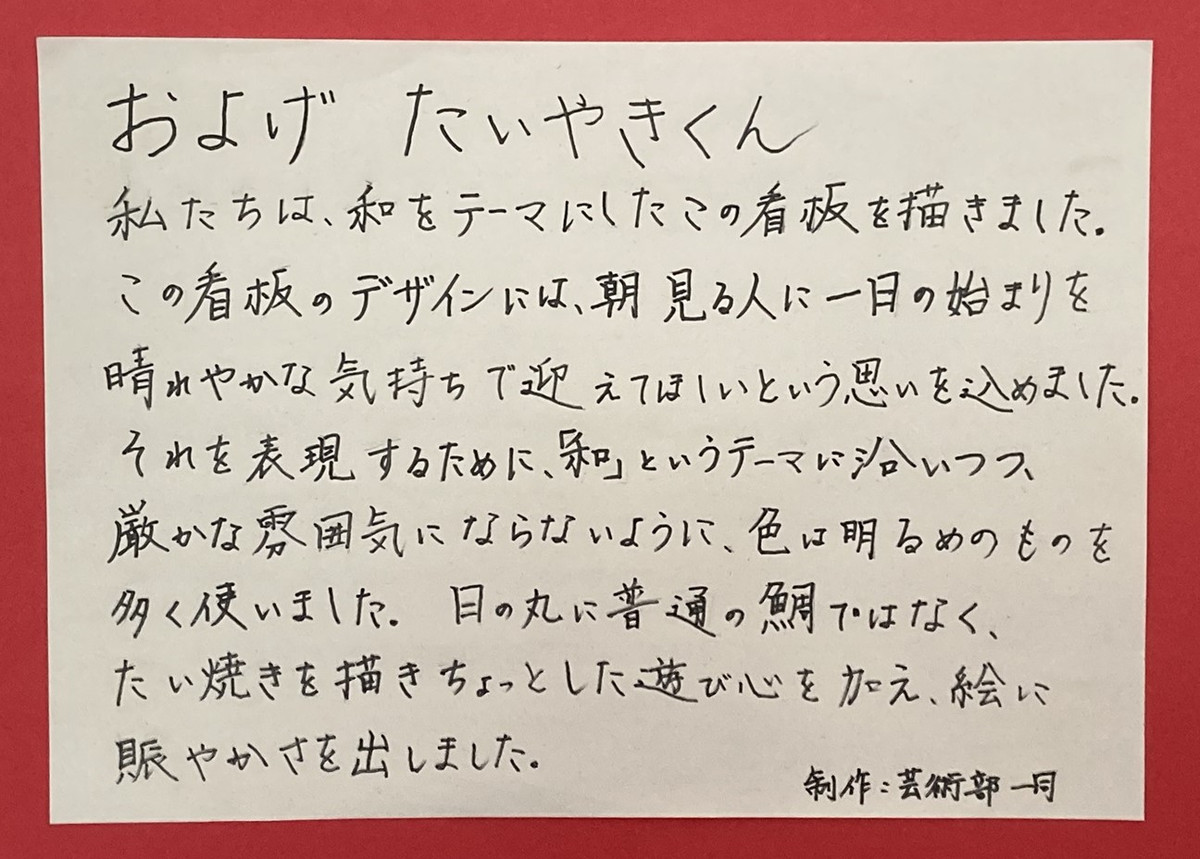 およげ たいやきくん
私たちは、和をテーマにしたこの看板を描きました。
この看板のデザインには、朝見る人に一日の始まりを
晴れやかな気持ちで迎えてほしいという思いを込めました。
それを表現するために、「和」というテーマに沿いつつ、
厳かな雰囲気にならないように、色は明るめのものを
多く使いました。 日の丸に普通の鯛ではなく、
たい焼きを描きちょっとした遊び心を加え、絵に
賑やかさを出しました。
制作：芸術部一同